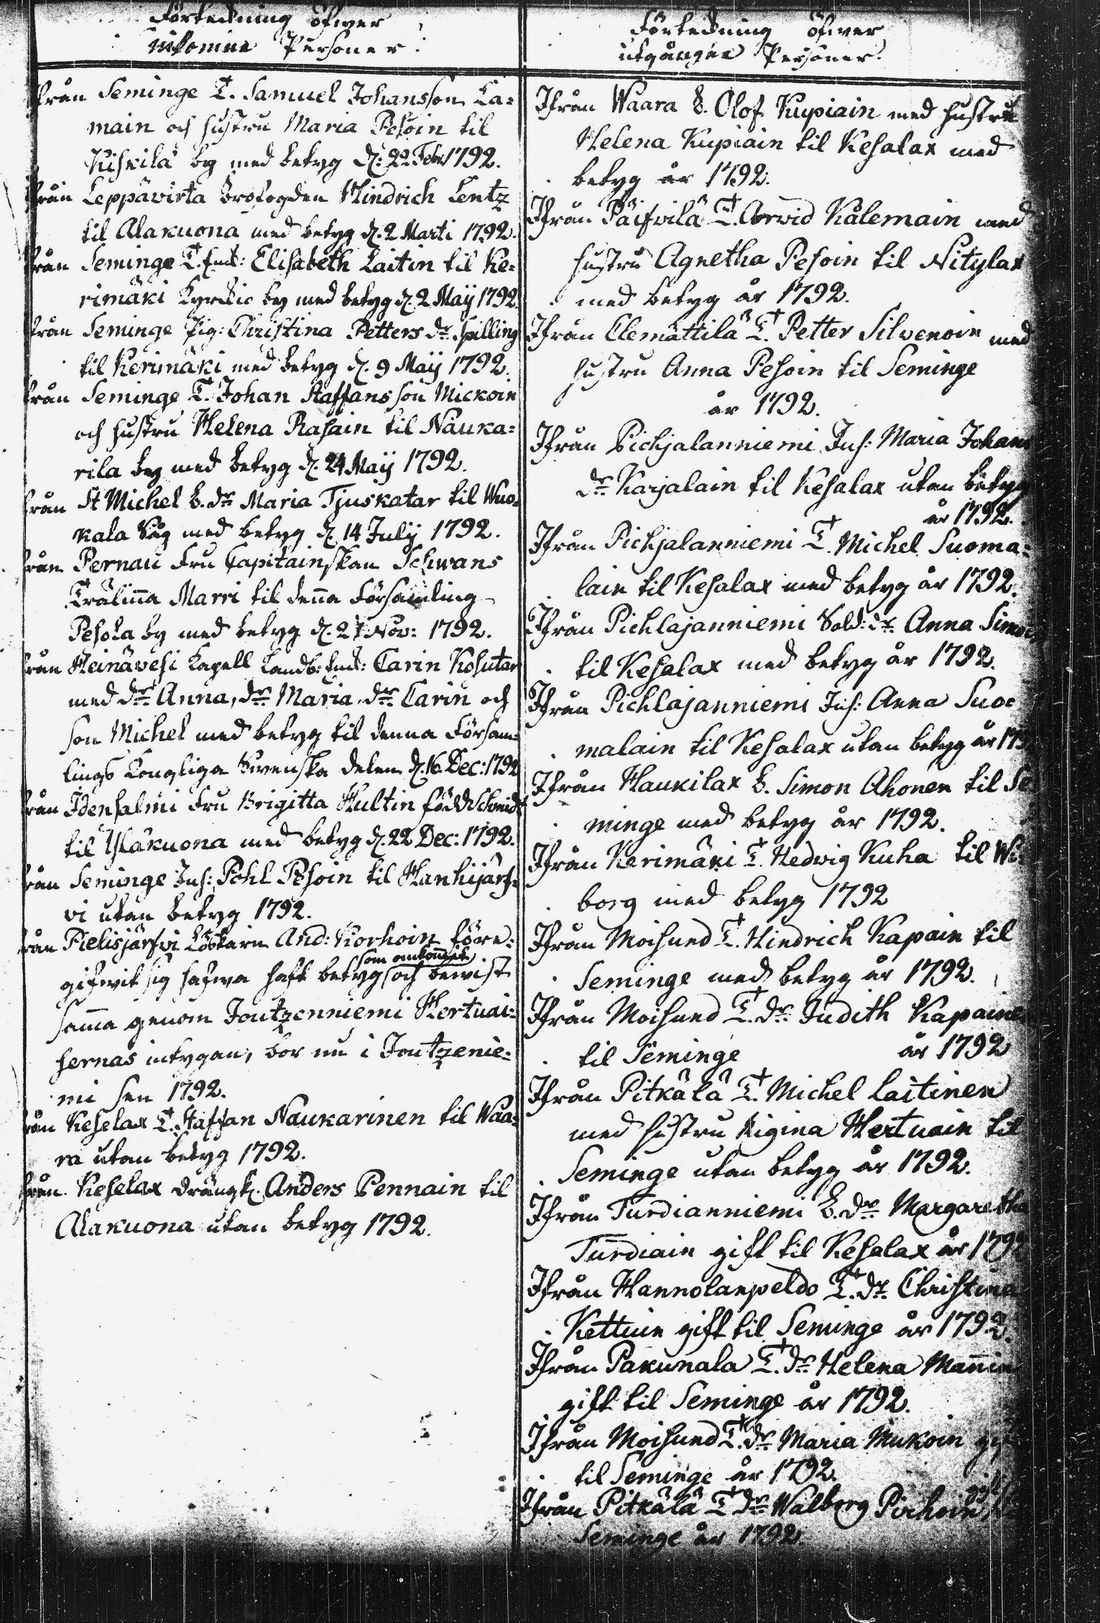 Förteckning öfwer
inkomne Personer:
från Seminge T. Samuel Johansson La=
main och hustru Maria Pesoin til
Kiskilä by med betyg d: 22 Febr 1792.
från Leppävirta Brofogden Hindrich Lentz
til Alakuona med betyg d. 2 Marti 1792.
från Seminge T. Enk: Elisabeth Laitin til Ke=
rimäki by med betyg d. 2 Maÿ 1792
från Seminge Pig: Christina Petters dr Spilling
til Kerimäki med betyg d. 9 Maÿ 1792.
från Seminge T. Johan Staffansson Mickoin
och hustru Helena Rasain til Nauka=
rila by med betyg d. 24 Maÿ 1792.
från St Michel B. dr Maria Tjuskatar til Wuo=
kala Såg med betyg d. 14 July 1792.
från Pernau Fru Capitainskan Schwans
Trälinna Marri til denna Församling
Pesola by med betyg d. 27 Nov: 1792.
från Heinävesi Capell Landb: Enk: Carin Kosutar
med dr Anna, dr Maria, dr Carin och
son Michel med betyg til denna Försam=
lings Kongliga Swenska delen d. 16 Dec: 1792
från Idensalmi Fru Brigitta Hultin född Schmidt
til Alakuona med betyg d. 22 Dec: 1792.
från Seminge Inh: Pehl Pesoin til Hanhijärf=
vi utan betyg 1792.
från Pielisjärfvi And: Korhoin före=
gifwit sig hafwa haft betyg och bewist
som omkommit
samma genom Joutzenniemi Hertuai=
sernas intygan, bor nu i Joutzenie=
mi sen 1792.
från Keselax T. Staffan Naukarinen til Waa=
ra utan betyg 1792.
från Keselax Drängk. Anders Pennain til
Alakuona utan betyg 1792.
Förteckning öfwer
utgångne Personer:
Ifrån Waara B. Olof Kupiain med hustru
Helena Kupiain til Kesalax med
betyg år 1792.
Ifrån Päifvilä T. Arvid Kålemain med
hustru Agnetha Pesoin til Nitylax
med betyg år 1792.
Ifrån Clemättilä T. Petter Silvenoin med
hustru Anna Pesoin til Seminge
år 1792.
Ifrån Pichjalanniemi Inh: Maria Johans
dr Karjalain til Kesalax utan betyg
år 1792.
Ifrån Pichjalanniemi T. Michel Suoma=
lain til Kesalax med betyg år 1792.
Ifrån Pichlajanniemi Sold: dr Anna
til Kesalax med betyg år 1792.
Ifrån Pichlajanniemi Inh: Anna Suo=
malain til Kesalax utan betyg år 1792
Ifrån Haukilax B. Simon Ahonen til Se
minge med betyg år 1792.
Ifrån Kerimäki T. Hedwig Kuha til Wi=
borg med betyg 1792
Ifrån Moisund T. Hindrich Kapain til
Seminge med betyg år 1792.
Ifrån Moisund T. dr Judith Kapaine
til Seminge år 1792
Ifrån Pitkälä T. Michel Laitinen
med hustru Rigina Hertuain til
Seminge utan betyg år 1792.
Ifrån Turdianniemi B. dr Margaretha
Turdiain gift til Kesalax år 1792
Ifrån Hannolanpeldo T. dr Christina
Kettuin gift til Seminge år 1792.
Ifrån Pakunala T. dr Helena Mannin
gift til Seminge år 1792.
Ifrån Moisund T. dr Maria Mukoin
til Seminge år 1792.
Ifrån Pitkälä T dr Walborg Pirhoin
Seminge år 1792.